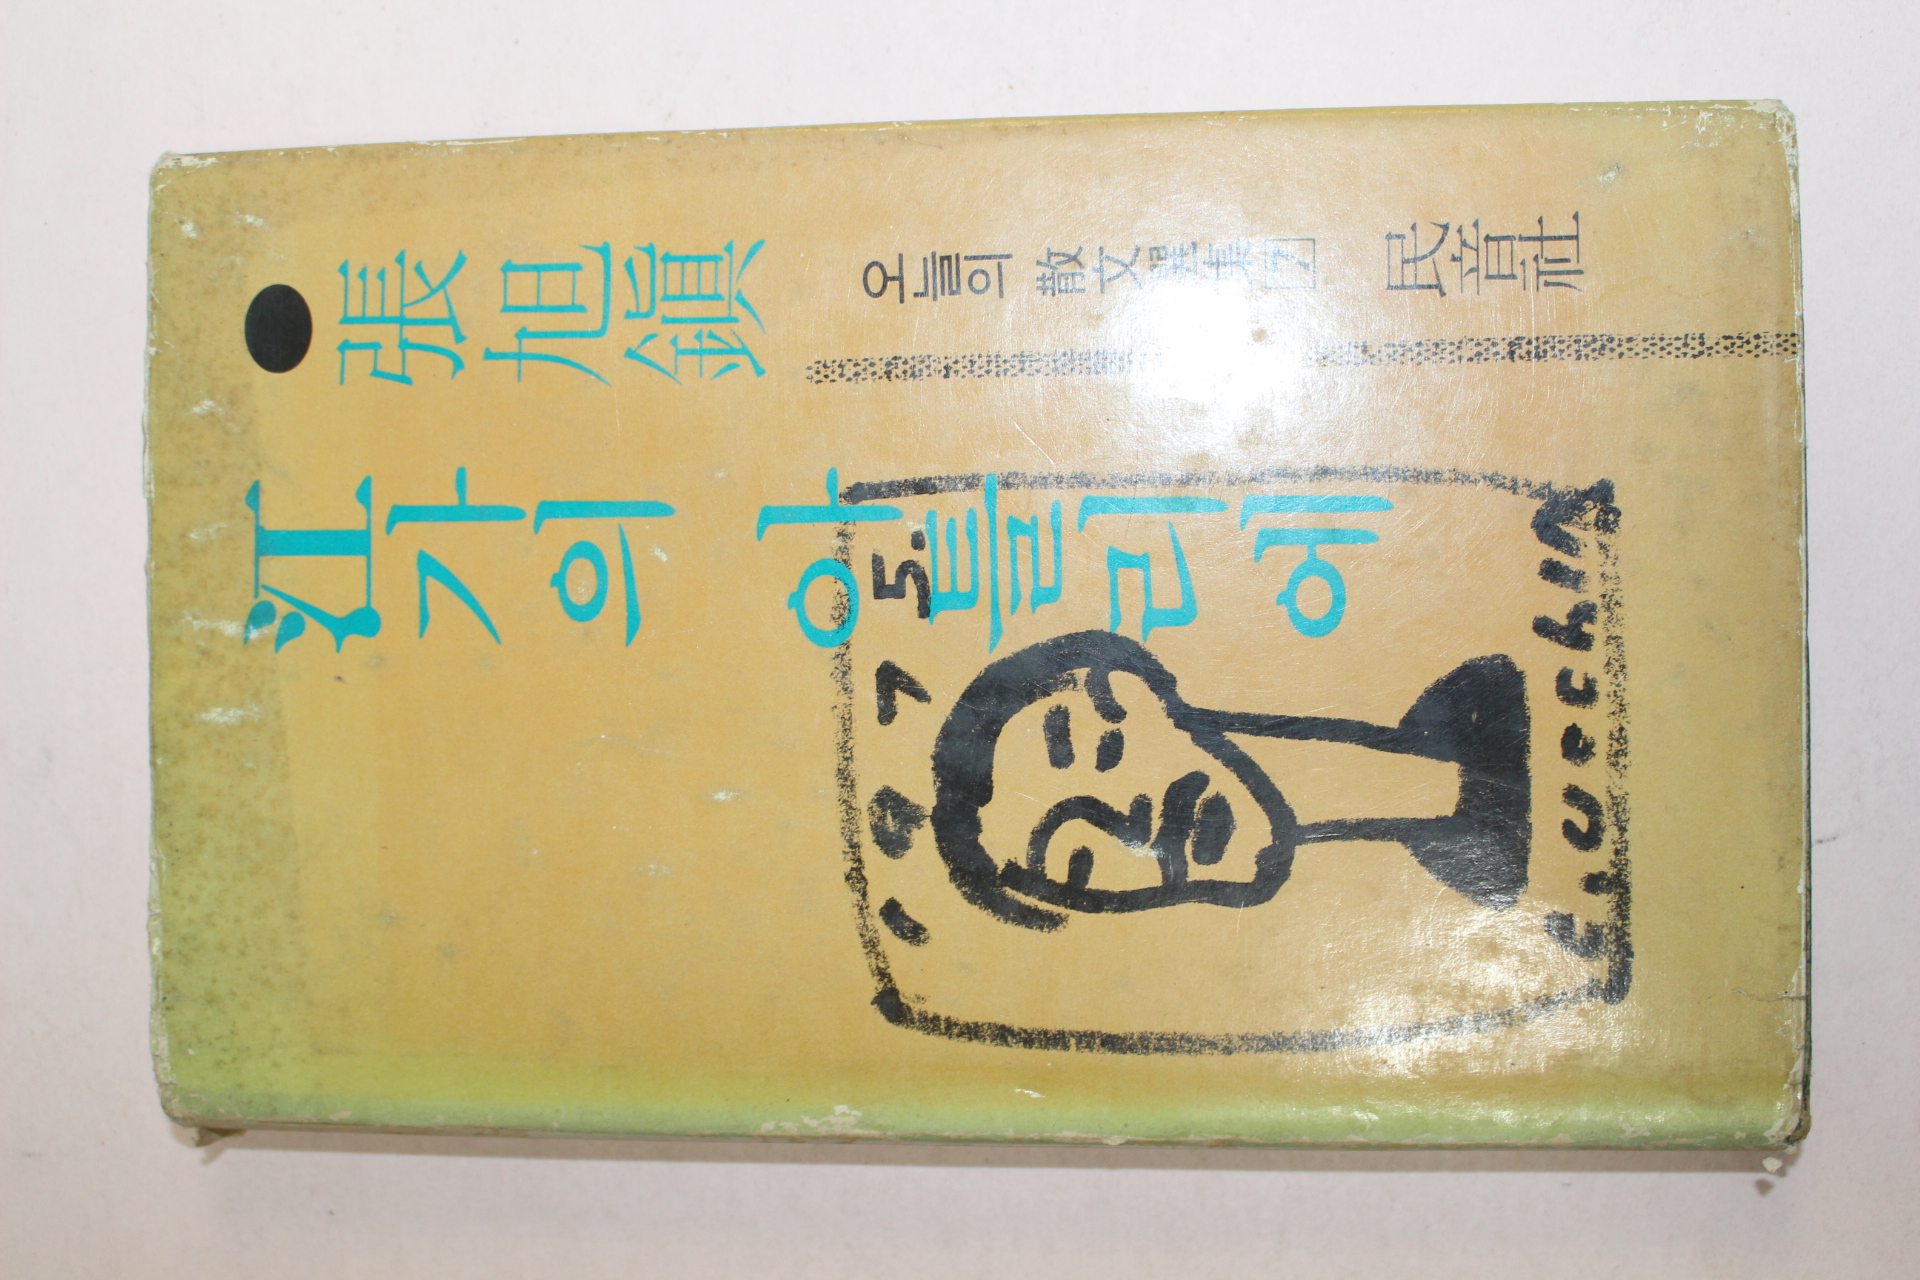 張旭鎭
오늘의 散文選集 7 民音社
江가의 아틀리에
1975.